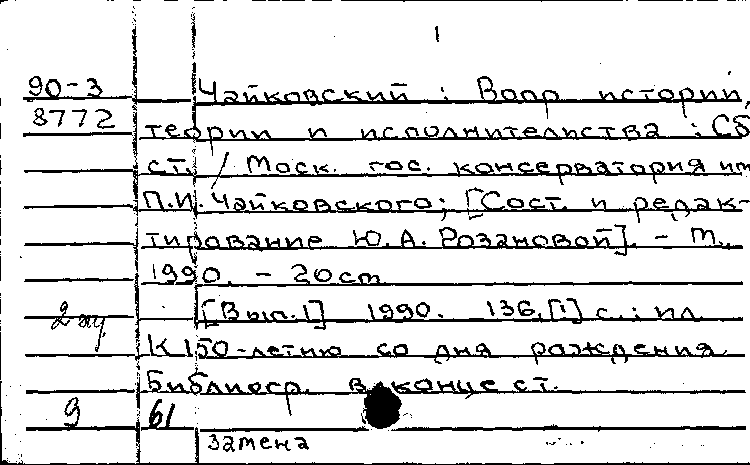 1
90-3 Чайковский : Вопр истории,
8772 теории и исполнительства : Сб
ст. / Моск. гос. консерватория им
П.И. Чайковского; [Сост. и редак-
тирование Ю.А. Розановой]. - М.,
1990. - 20 см
[Вып.1] 1990. 136,[1] с. : ил.
К 150-летию со дня рождения.
Библиогр. в конце ст.
9 61
замена